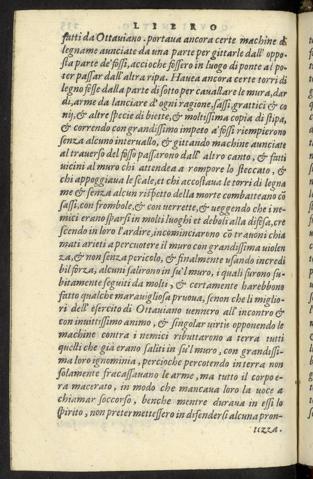 LIBERO
fatti da Ottauiano. portaua ancora certe machine di
legname auinciate da una parte per gittarle dall'oppo-
sta parte de' fossi, accioche fossero in luogo di ponte al po-
ter passar dall'altra ripa. Hauea ancora certe torri di
legno fesse dalla parte di sotto per caualcare le mura, dar
di, arme da lanciare d'ogni ragione, sassi, grattici & co
nij, & altre specie di biette, & moltissima copia di stipa,
& correndo con grandissimo impeto a' fossi riempierono
senza alcuno interuallo, & gittando machine auinciate
al trauerso del fosso passarono dall'altro canto, & fatti
uicini al muro chi attendea a rompere lo steccato, &
chi appoggiaua le scale, et chi accostaua le torri di legna
me & senza alcun rispetto della morte combatteano cō
sassi, con frombole, & con uerrette, & ueggendo che i ne-
mici erano sparsi in molti luoghi et deboli alla difesa, cre
scendo in loro l'ardire, incominciarono cō trauoni chia
mati arieti a percuotere il muro con grandissima uiolen
za, & non senza pericolo, & finalmente usando incredi
bil forza, alcuni salirono in su'l muro, i quali furono su-
bitamente seguiti da molti, & certamente harebbono
fatto qualche marauigliosa pruoua, se non che li miglio-
ri dell'esercito di Ottauiano uennero all'incontro &
con inuittissimo animo, & singolar uirtù opponendo le
machine contra i nemici ributtarono a terra tutti
quelli che già erano saliti in su'l muro, con grandissi-
ma loro ignominia, percioche percotendo interra non
solamente fracassauano le arme, ma tutto il corpo e-
ra macerato, in modo che mancaua loro la uoce a
chiamar soccorso, benche mentre duraua in essi lo
spirito, non pretermettessero in difendersi alcuna pron-
tezza.